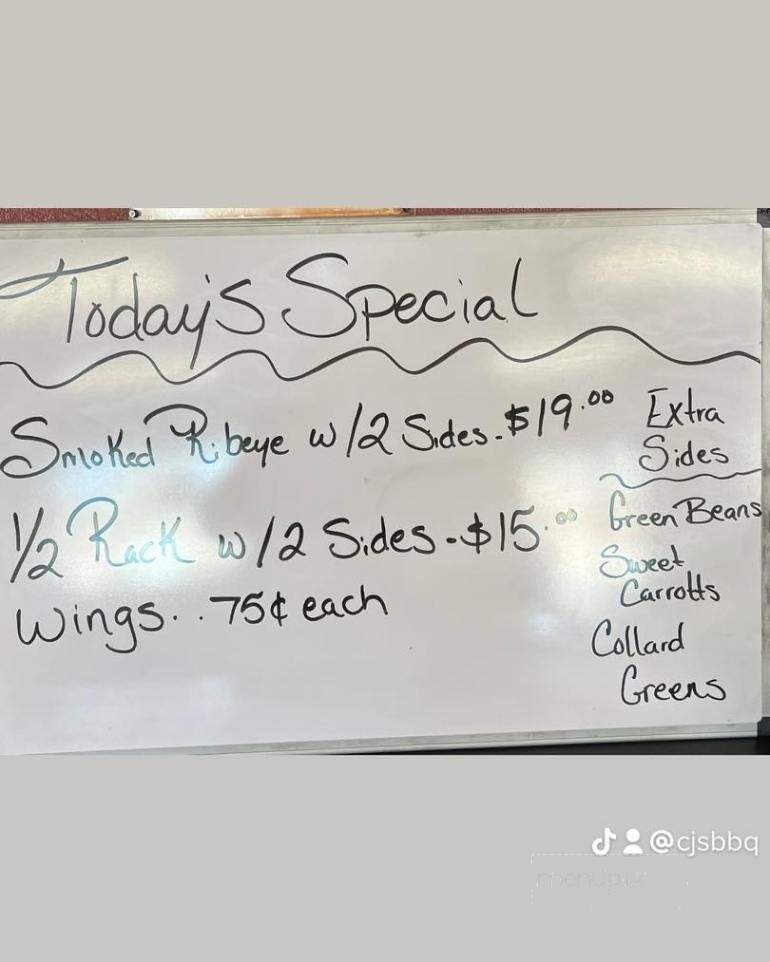 Today's Special
Smoked Ribeye w/2 Sides - $19.00
1/2 Rack w/2 Sides - $15.00
Wings.. .75¢ each
Extra
Sides
Green Beans
Sweet
Carrotts
Collard
Greens
@cjsbbq